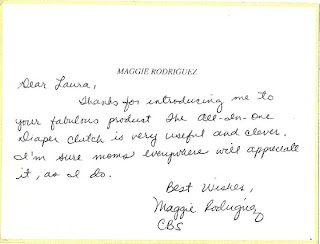 MAGGIE RODRIGUEZ
Dear Laura,
Thanks for introducing me to
your fabulous product. The All-In-One
Diaper Clutch is very useful and clever.
I'm sure moms everywhere will appreciate
it, as I do.
Best Wishes,
Maggie Rodriguez
CBS